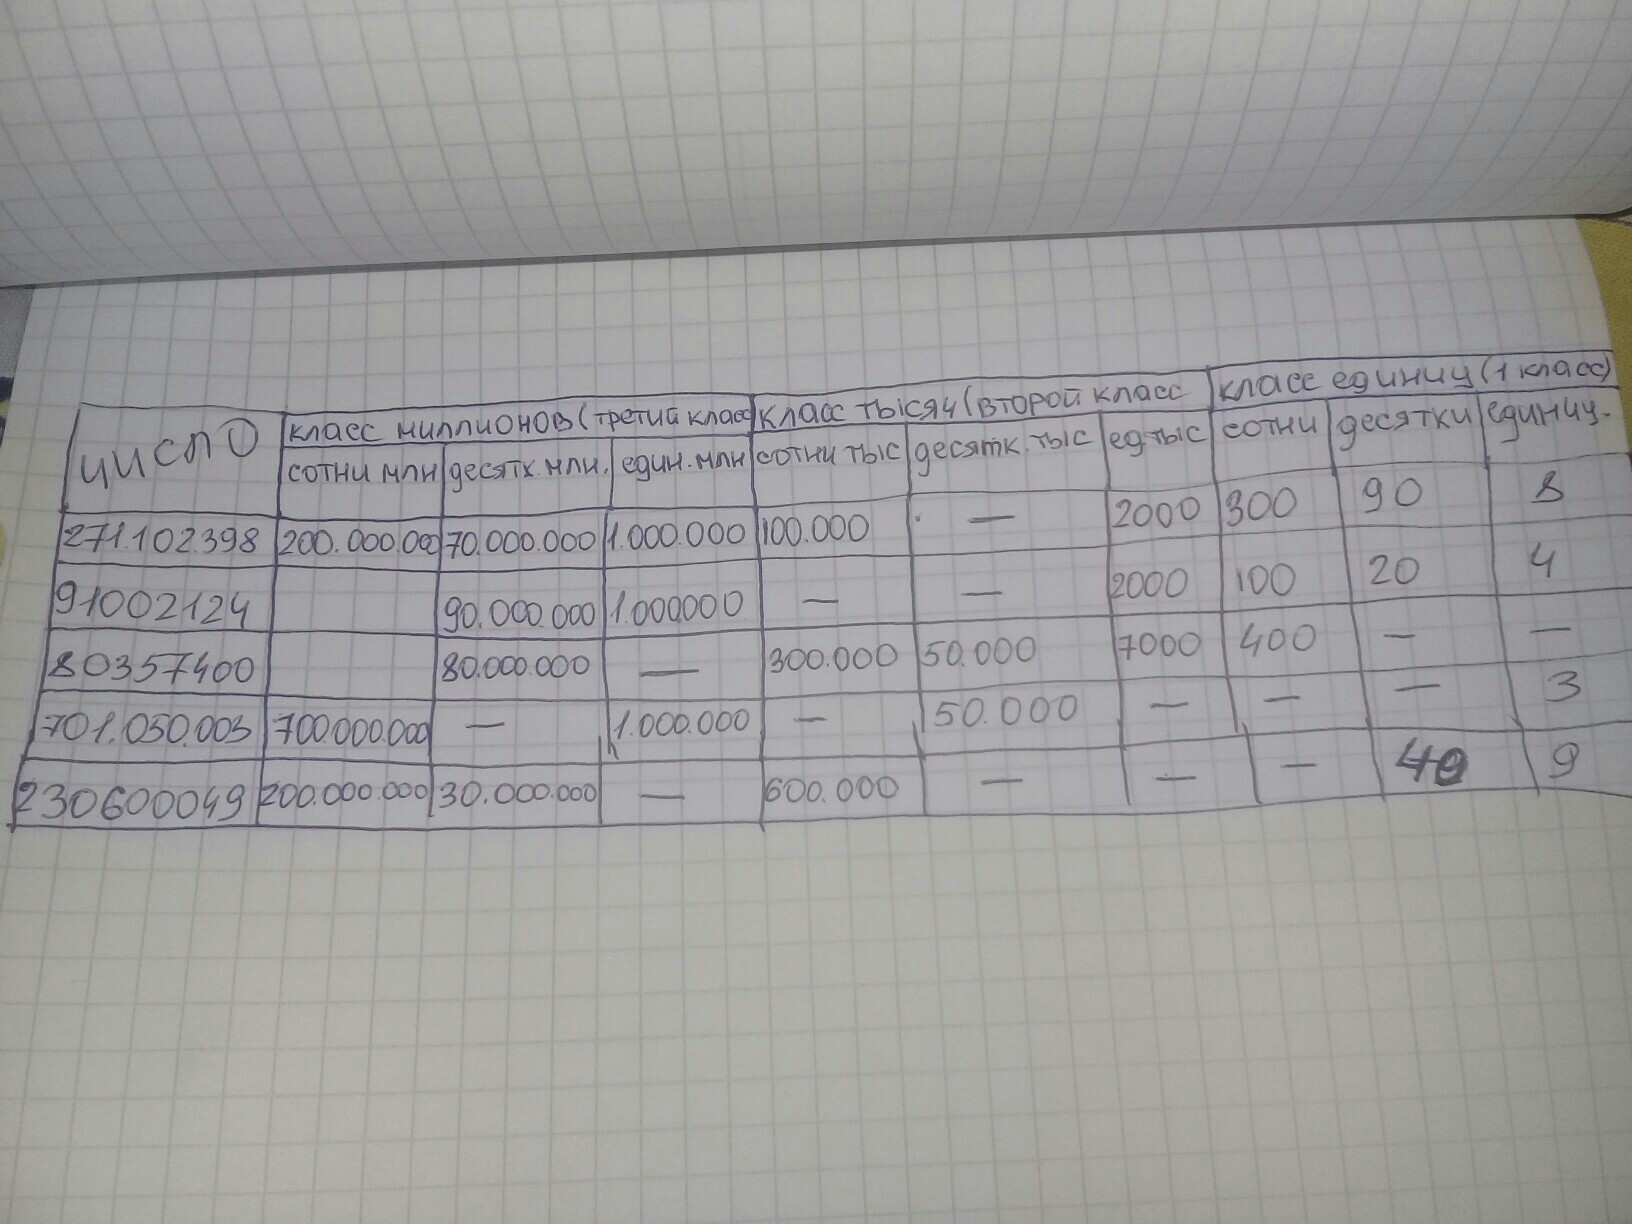 число класс миллионов (третий класс класс тысяч (второй класс класс единиц (1 класс)
сотни млн десятк. млн. един. млн сотни тыс десятк. тыс ед тыс сотни десятки единиц.
271.102.398 200.000.000 70.000.000 1.000.000 100.000 — 2000 300 90 8
91002124 90.000.000 1.000000 — — 2000 100 20 4
80357400 80.000.000 — 300.000 50.000 7000 400 — —
701.050.003 700.000.000 — 1.000.000 — 50.000 — — — 3
230600049 200.000.000 30.000.000 — 600.000 — — — 40 9